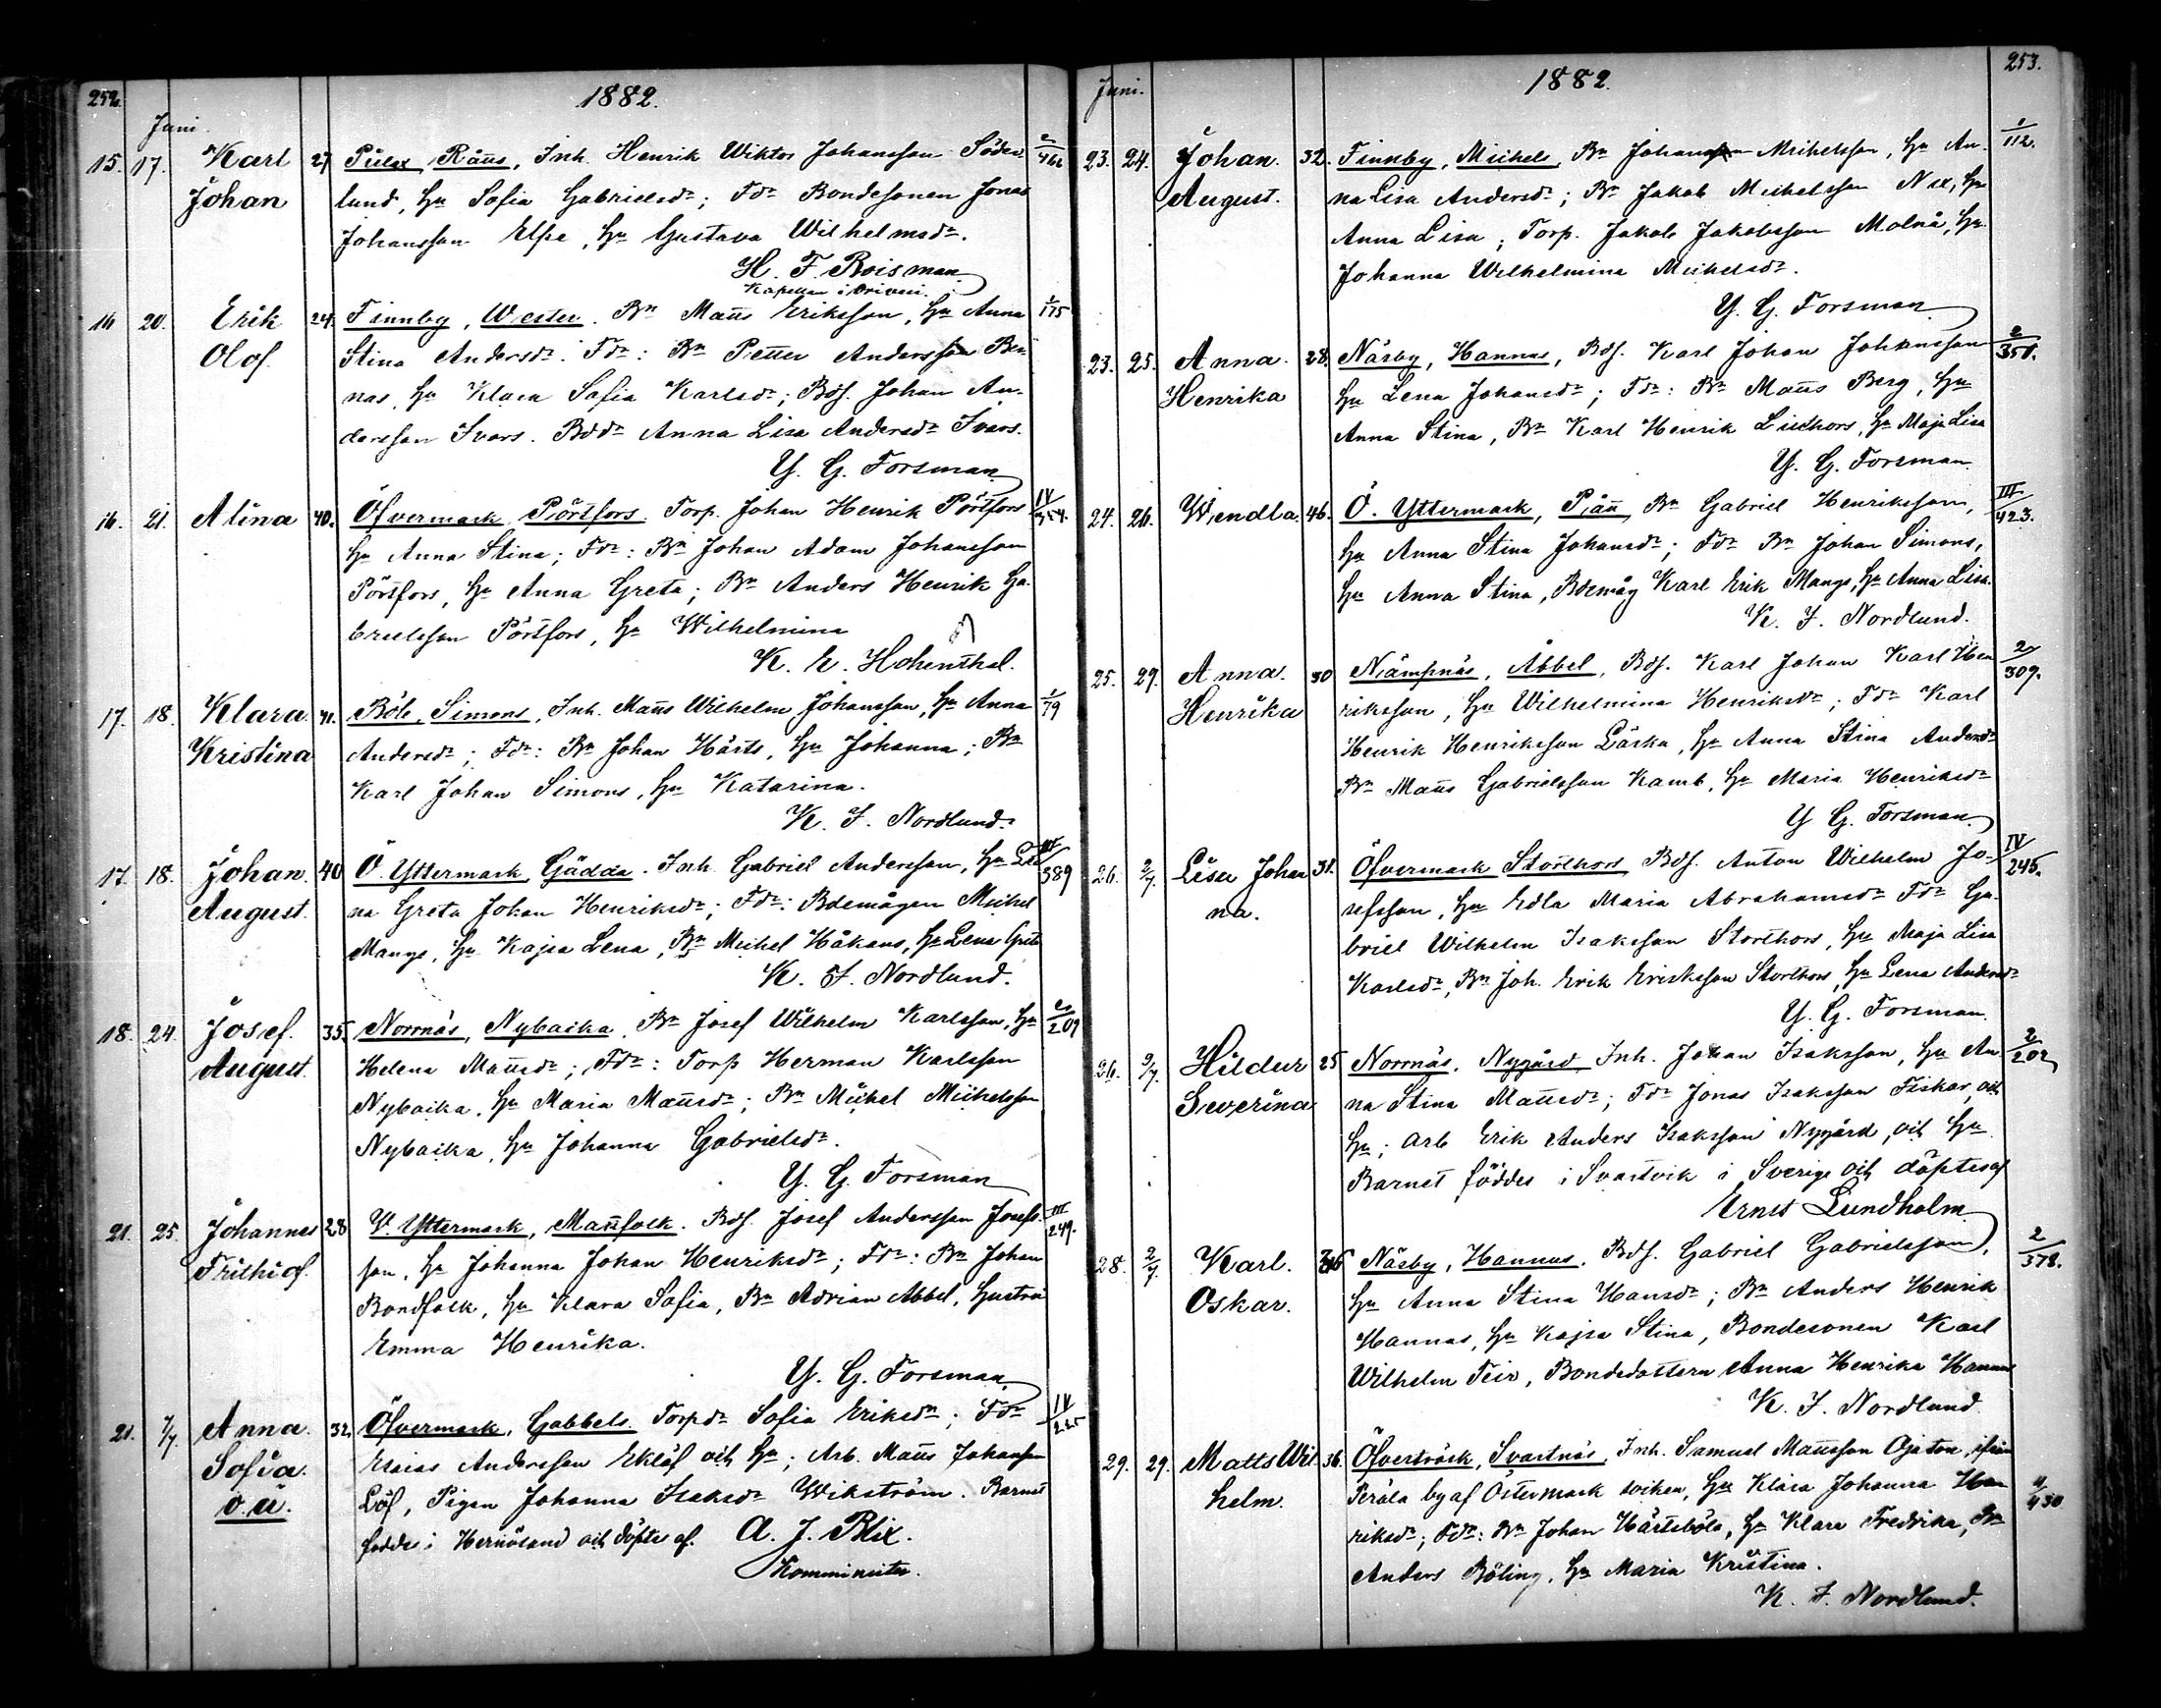 252.
1882.
Juni.
15. 17. Karl 27 Pielax, Räns, Inh. Henrik Wiktor Johansson Söder- 2/462
Johan lund, Hu Sofia Gabrielsdr; Fdr Bondesonen Jonas
Johansson Elfse, Hu Gustava Wilhelmsdr.
H. F. Roisman
Kapellan i Oriveri.
16 20. Erik 24. Finnby, Wester. Bn Mañs Eriksson, Hu Anna 1/175
Olof. Stina Andersdr. Fdr: Bn Petter Andersson Ben-
nas, Hu Klara Sofia Karlsdr; Bdf. Johan An-
dersson Ivars. Bddr Anna Lisa Andersdr Ivars.
Y. G. Forsman
16. 21. Alina 40. Öfvermark Pörtfors. Torp. Johan Henrik Pörtfors IV/354.
Hu Anna Stina; Fdr: Bn Johan Adam Johansson
Pörtfors, Hu Anna Greta; Bn Anders Henrik Ga-
brielsson Pörtfors, Hu Wilhelmina
K. E. Hohenthal.
17. 18. Klara 41. Böle, Simons, Inh. Mañs Wilhelm Johansson, Hu Anna 1/79
Kristina Andersdr; Fdr: Bn Johan Härts, Hu Johanna; Bn
Karl Johan Simons, Hu Katarina.
K. J. Nordlund.
17. 18. Johan 40 Ö. Yttermark, Gädda. Inh. Gabriel Andersson, Hu Le- III/389
August. na Greta Johan Henriksdr; Fdr: Bdemågen Mickel
Mangs, Hu Kajsa Lena, Bn Mickel Håkans, Hu Lena Greta
K. J. Nordlund.
18. 24. Josef. 35. Norrnäs, Nybacka. Bn Josef Wilhelm Karlsson, Hu 2/209
August. Helena Mañsdr; Fdr: Torp Herman Karlsson
Nybacka, Hu Maria Mañsdr; Bn Mickel Mickelsson
Nybacka, Hu Johanna Gabrielsdr.
Y. G. Forsman
21. 25. Johannes 28 V. Yttermark, Mañfolk. Bdf. Josef Andersson Josefs- III/249.
Frithiof. son, Hu Johanna Johan Henriksdr; Fdr: Bn Johan
Bondfolk, Hu Klara Sofia, Bn Adrian Abbel, Hustru
Emma Henrika.
Y. G. Forsman
21. 7/7. Anna 32. Öfvermark, Gabbels. Torpdr Sofia Eriksdr; Fdr IV/225
Sofia. Esaias Andersson Eklöf och Hu; Arb. Mañs Johansson
o.ä. Löf, Pigan Johanna Isaksdr Wikström. Barnet
föddes i Hernösand och döptes af. A. J. Blix.
Komminister.
253.
1882.
Juni.
23. 24. Johan 32. Finnby, Mickels, Bn Johan Mickelsson, Hu An- 1/112.
August. na Lisa Andersdr; Bn Jakob Mickelsson Nix, Hu
Anna Lisa; Torp. Jakob Jakobsson Molnå, Hu
Johanna Wilhelmina Mickelsdr.
Y. G. Forsman
23. 25. Anna 28. Näsby, Hannus, Bdf. Karl Johan Johansson 2/351.
Henrika Hu Lena Johansdr; Fdr: Bn Mañs Berg, Hu
Anna Stina, Bn Karl Henrik Liickhors, Hu Maja Lisa
Y. G. Forsman
24. 26. Wendla. 46. Ö. Yttermark, Påñ, Bn Gabriel Henriksson, III/423.
Hu Anna Stina Johansdr; Fdr Bn Johan Simons,
Hu Anna Stina, Bdemåg Karl Erik Mangs, Hu Anna Lisa.
K. J. Nordlund.
25. 29. Anna 30 Nämpnäs, Abbel, Bdf. Karl Johan Karl Hen- 2/309.
Henrika riksson, Hu Wilhelmina Henriksdr; Fdr Karl
Henrik Henriksson Läska, Hu Anna Stina Andersdr
Bn Mañs Gabrielsson Kamb, Hu Maria Henriksdr
Y. G. Forsman
26. 2/7. Lisa Johan 31. Öfvermark Storthors Bdf. Anton Wilhelm Jo- IV/245.
na. sefsson, Hu Edla Maria Abrahamsdr Fdr Ga-
briel Wilhelm Isaksson Storthors, Hu Maja Lisa
Karlsdr, Bn Joh. Erik Eriksson Storthors, Hu Lena Andersdr
Y. G. Forsman.
26. 9/7. Hildur 25 Norrnäs, Nygård Inh. Johan Isaksson, Hu An- 2/202
Severina na Stina Mañsdr; Fdr Jonas Isaksson Fiskar, och
Hu; Arb Erik Anders Isaksson Nygård, och Hu
Barnet föddes i Svartvik i Sverige och döptes af
Ernst Lundholm
28. 2/7. Karl 36 Näsby, Hannus. Bdf. Gabriel Gabrielsson, 2/378.
Oskar. Hu Anna Stina Hansdr; Bn Anders Henrik
Hannus, Hu Kajsa Stina, Bondesonen Karl
Wilhelm Teir, Bondedottern Anna Henrika Hannus
K. J. Nordlund
29. 29. Matts Wil- 36. Öfverträsk, Svartnäs, Inh. Samuel Mañsson Ojaton, ifrån
helm. Perälä by af Östermark socken, Hu Klara Johanna Hen- 2/430
riksdr; Fdr: Bn Johan Härtsböle, Hu Klara Fredrika, Bn
Anders Böling, Hu Maria Kristina.
K. J. Nordlund.